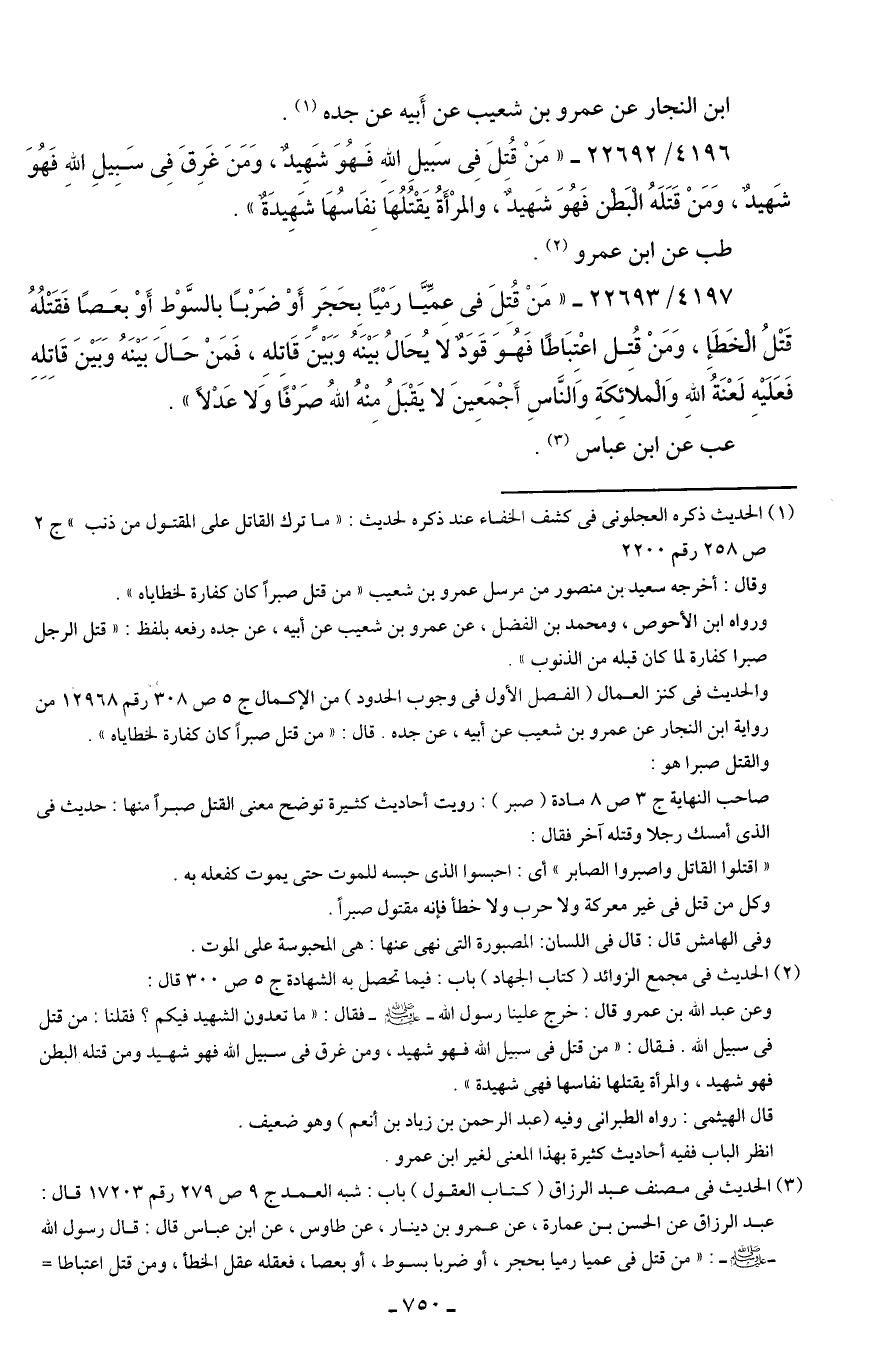 ابن النجار عن عمرو بن شعيب عن أَبيه عن جده (١) .
٤١٩٦/ ٢٢٦٩٢ ـ « مَنْ قُتِلَ فِى سَبِيلِ اللهِ فَهُوَ شَهِيدٌ ، وَمَنَ غَرِقَ فِى سَبِيلِ اللهِ فَهُوَ
شَهِيدٌ ، وَمَنْ قَتَلَهُ الْبَطْن فَهُوَ شَهِيدٌ ، والمرْأَةُ يَقْتُلُهَا نِفَاسُهَا شَهِيدَةٌ » .
طب عن ابن عمرو (٢) .
٤١٩٧/ ٢٢٦٩٣ ـ « مَنْ قُتِلَ فى عِمِّيَّا رَمْيًا بِحَجَرٍ أَوْ ضَرْبًا بالسَّوْطِ أَوْ بعَصًا فَقَتْلُهُ
قَتْلُ الْخَطَإِ ، وَمَنْ قُتِل اعْتِبَاطًا فَهُوَ قَوَدٌ لا يُحَالُ بَيْنَهُ وَبَيْنَ قَاتِله ، فَمَنْ حَالَ بَيْنَهُ وَبَيْنَ قَاتِلِهِ
فَعَلَيْهِ لَعْنَةُ اللهِ وَالْملائِكَةِ وَالنَّاسِ أَجْمَعِينَ لا يَقْبَلُ مِنْهُ اللهُ صَرْفًا وَلا عَدْلاً » .
عب عن ابن عباس (٣) .
(١) الحديث ذكره العجلونى فى كشف الخفاء عند ذكره لحديث : « ما ترك القاتل على المقتول من ذنب » ج ٢
ص ٢٥٨ رقم ٢٢٠٠
وقال : أخرجه سعيد بن منصور من مرسل عمرو بن شعيب « من قتل صبراً كان كفارة لخطاياه » .
ورواه ابن الأحوص ، ومحمد بن الفضل ، عن عمرو بن شعيب عن أبيه ، عن جده رفعه بلفظ : « قتل الرجل
صبرا كفارة لما كان قبله من الذنوب » .
والحديث فى كنز العمال ( الفصل الأول فى وجوب الحدود ) من الإكمال ج ٥ ص ٣٠٨ رقم ١٢٩٦٨ من
رواية ابن النجار عن عمرو بن شعيب عن أبيه ، عن جده . قال : « من قتل صبراً كان كفارة لخطاياه » .
والقتل صبرا هو :
صاحب النهاية ج ٣ ص ٨ مادة ( صبر ) : رويت أحاديث كثيرة توضح معنى القتل صبراً منها : حديث فى
الذى أمسك رجلا وقتله آخر فقال :
« اقتلوا القاتل واصبروا الصابر » أى : احبسوا الذى حبسه للموت حتى يموت كفعله به .
وكل من قتل فى غير معركة ولا حرب ولا خطأ فإنه مقتول صبراً .
وفى الهامش قال : قال فى اللسان: المصبورة التى نهى عنها : هى المحبوسة على الموت .
(٢) الحديث فى مجمع الزوائد ( كتاب الجهاد ) باب : فيما تحصل به الشهادة ج ٥ ص ٣٠٠ قال :
وعن عبد الله بن عمرو قال : خرج علينا رسول الله ـ ﷺ ـ فقال : « ما تعدون الشهيد فيكم ؟ فقلنا : من قتل
فى سبيل الله . فقال : « من قتل فى سبيل الله فهو شهيد ، ومن غرق فى سبيل الله فهو شهيد ومن قتله البطن
فهو شهيد ، والمرأة يقتلها نفاسها فهى شهيدة » .
قال الهيثمى : رواه الطبرانى وفيه (عبد الرحمن بن زياد بن أنعم ) وهو ضعيف .
انظر الباب ففيه أحاديث كثيرة بهذا المعنى لغير ابن عمرو .
(٣) الحديث فى مصنف عبد الرزاق ( كتاب العقول ) باب : شبه العمد ج ٩ ص ٢٧٩ رقم ١٧٢٠٣ قال :
عبد الرزاق عن الحسن بن عمارة ، عن عمرو بن دينار ، عن طاوس ، عن ابن عباس قال : قال رسول الله
ـ ﷺ ـ : « من قتل فى عميا رميا بحجر ، أو ضربا بسوط ، أو بعصا ، فعقله عقل الخطأ ، ومن قتل اعتباطا =
ـ ٧٥٠ ـ